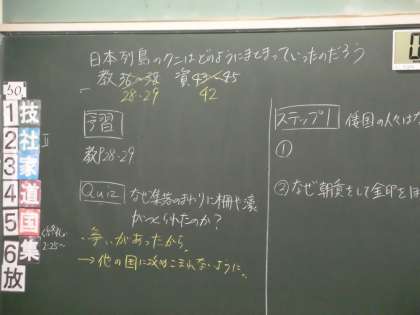 日本列島のクニはどのようにまとまっていったのだろう
教 資 43 45
28・29 42
習
教P28-29
Quiz なぜ集落のまわりに柵や濠
がつくられたのか?
・争いがあったから
→他の国に攻めこまれないように
ステップ1 倭国の人々はな
①
②なぜ朝貢をして金印をほ
50
1 技
2 社 II
3 家
4 道
5 国
6 集
2:25~
放
0